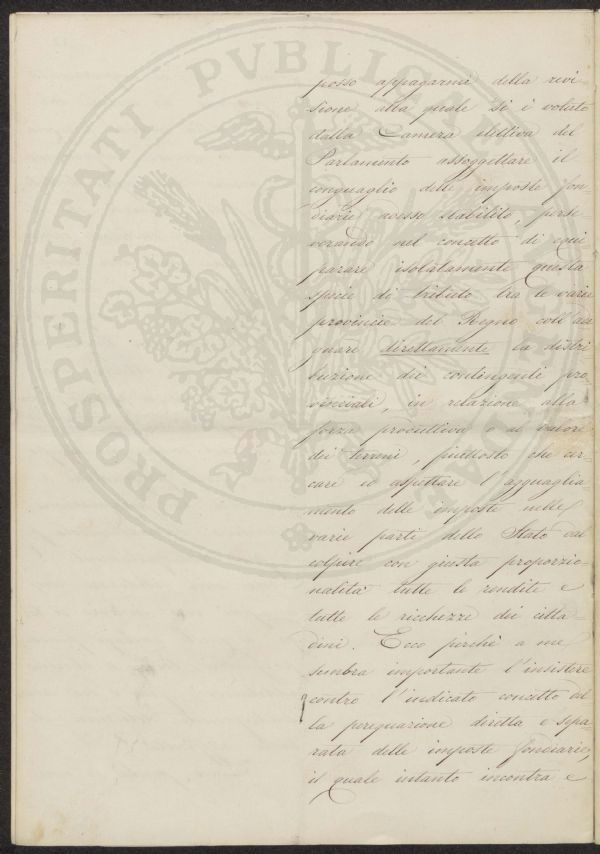 PROSPERITATI PVBLICAE
posso appagarmi della revi-
sione alla quale si è voluto
dalla Camera elettiva del
Parlamento assoggettare il
conguaglio delle imposte fon-
diarie adesso stabilito, perse-
verando nel concetto di equi
parare isolatamente questa
specie di tributo tra le varie
provincie del Regno coll'ade
guare direttamente la distri
buzione dei contingenti pro-
vinciali, in relazione alla
forza produttiva e al valore
dei terreni, piuttosto che cer-
care ed aspettare l'agguaglia
mento delle imposte nelle
varie parti dello Stato dal
colpire con giusta proporzio-
nalità tutte le rendite e
tutte le ricchezze dei citta-
dini. Ecco perchè a me
sembra importante l'insistere
contro l'indicato concetto del
la perequazione diretta e sepa-
rata delle imposte fondiarie,
il quale intanto incontra e